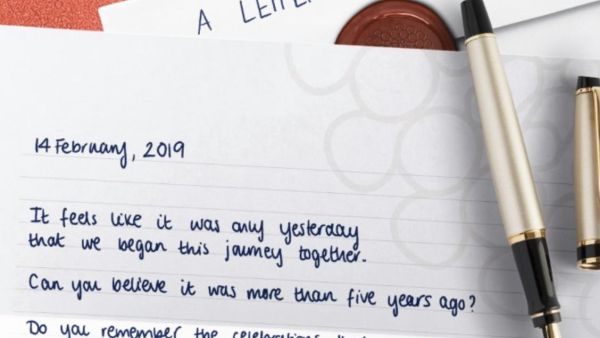 A LETTE
14 February, 2019
It feels like it was only yesterday
that we began this journey together.
Can you believe it was more than five years ago?
Do you remember the celebrations